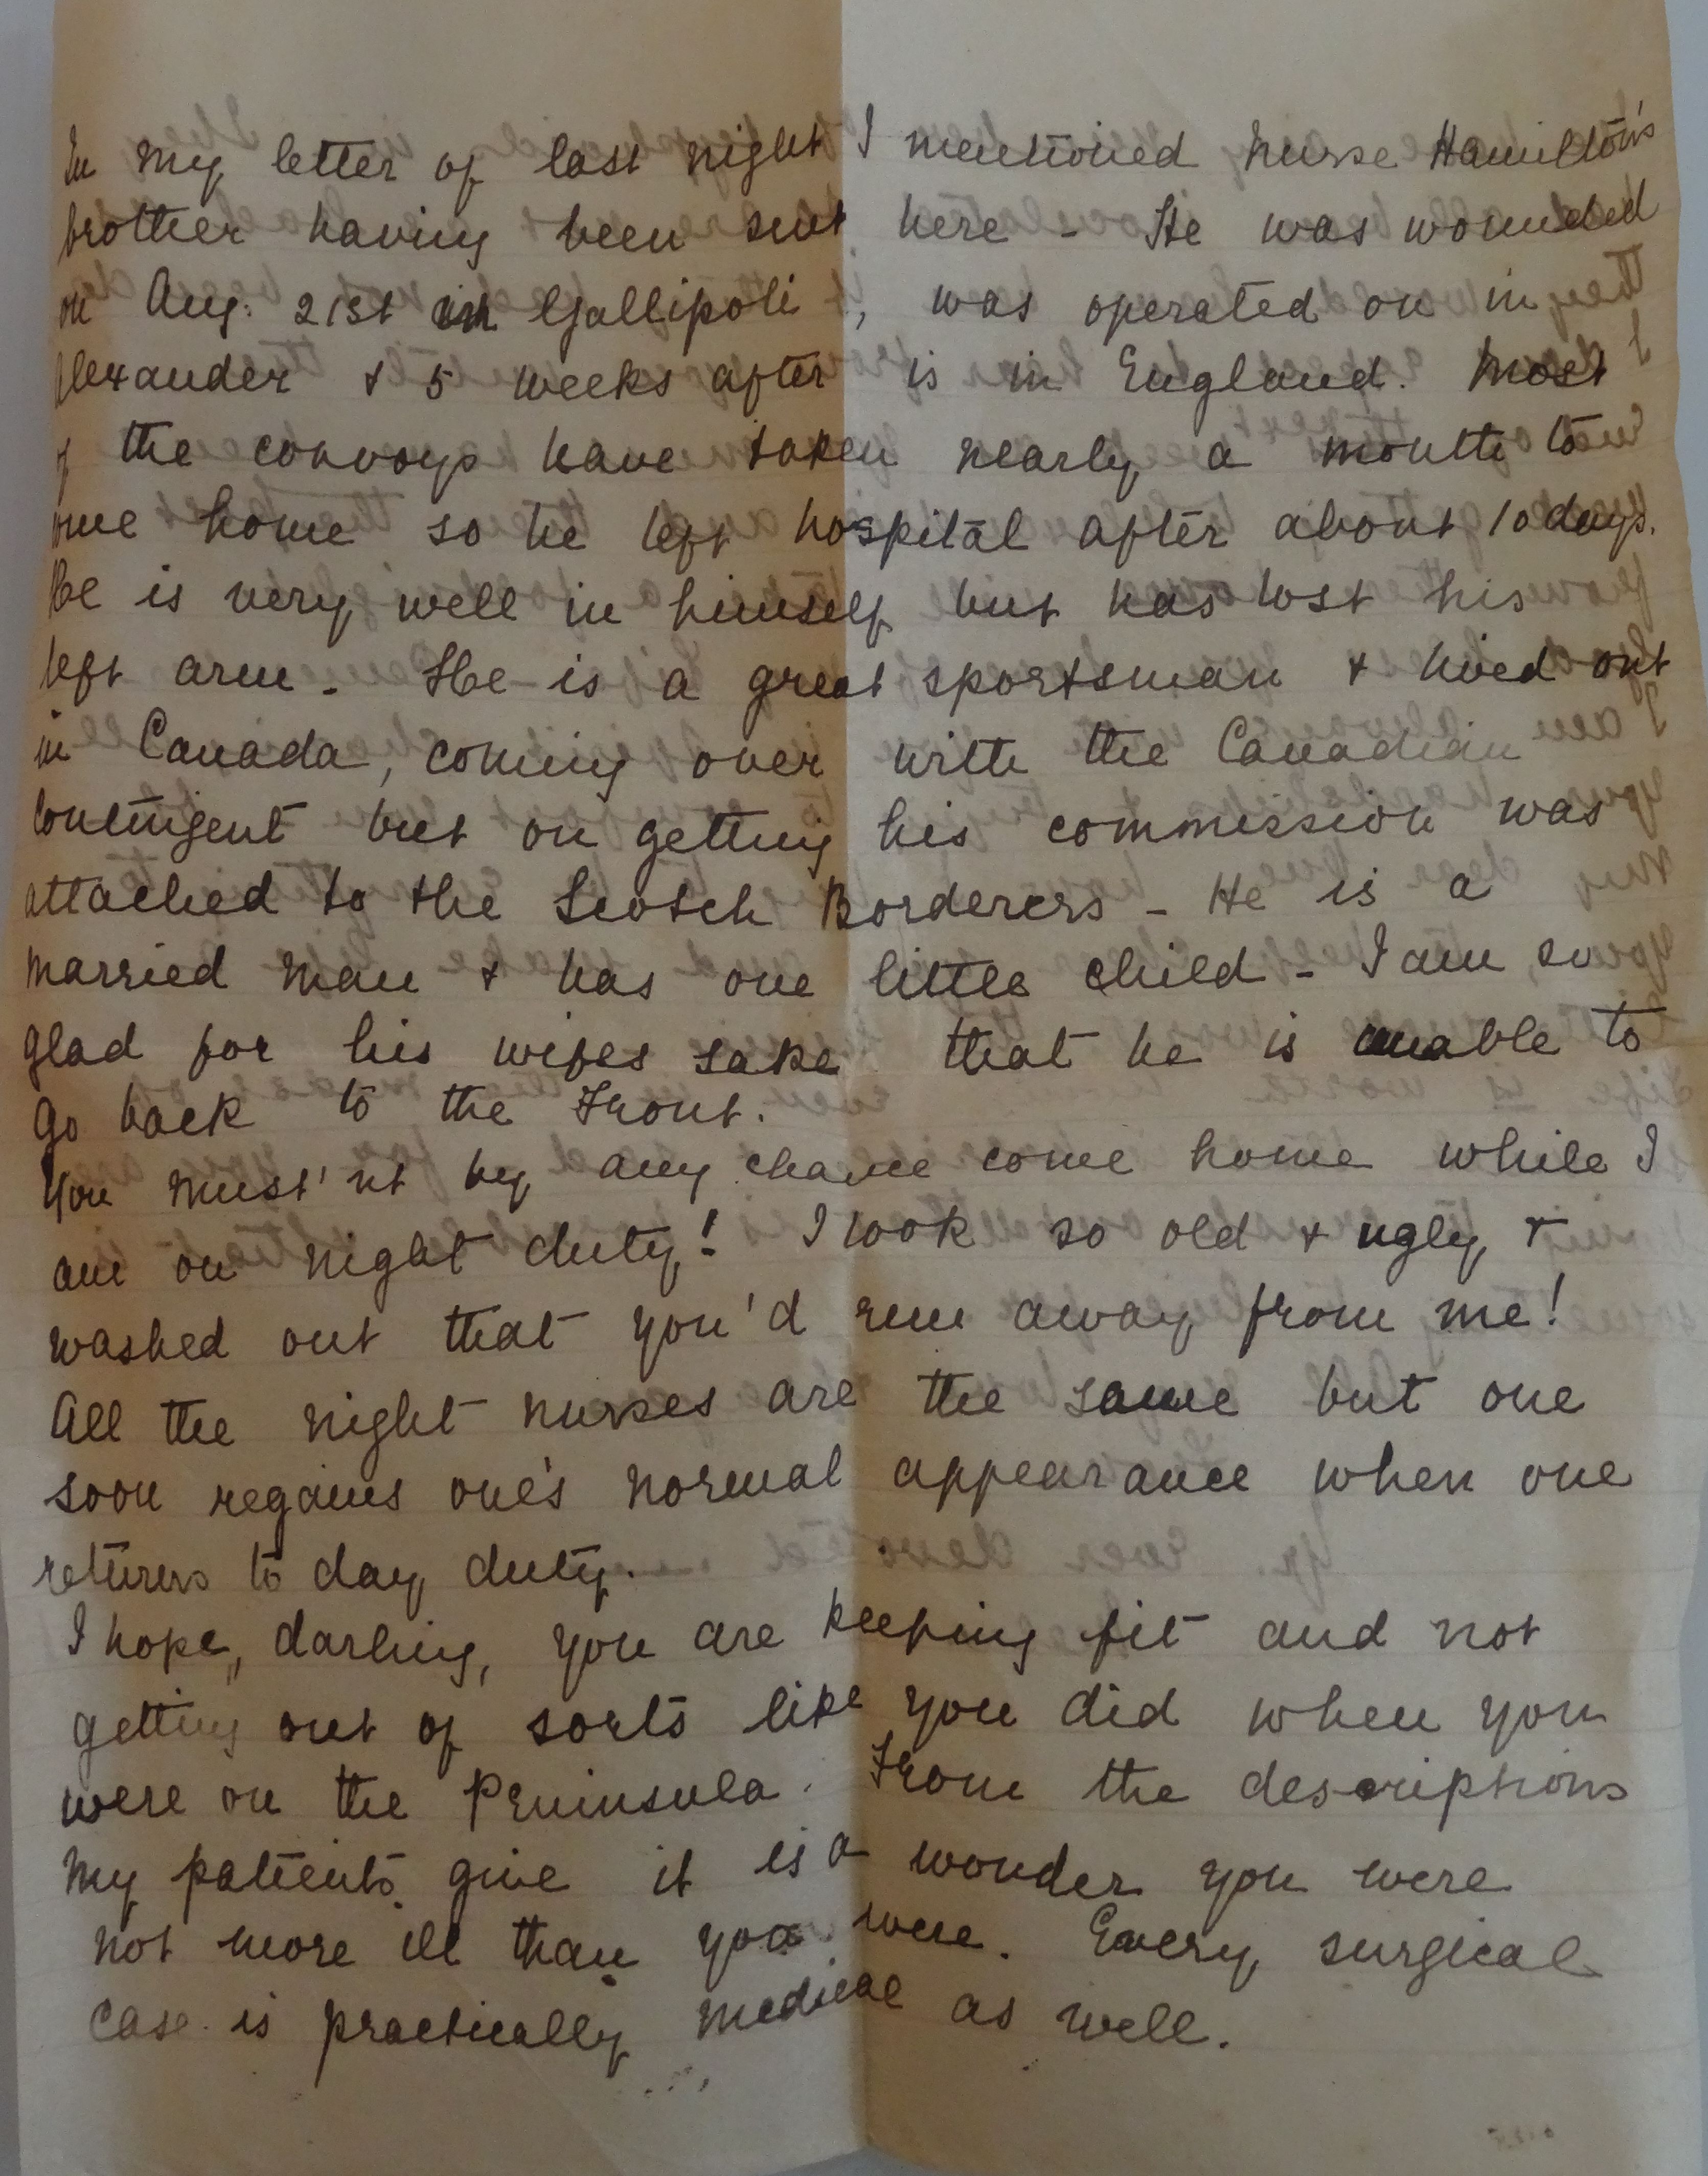 In my letter of last night I mentioned Nurse Hamilton's
brother having been sent here - He was wounded
on Aug. 21st in Gallipoli, was operated on in
Alexander & 5 weeks after is in England. Most
of the convoys have taken nearly a month to
ome home so he left hospital after about 10 days.
He is very well in himself but has lost his
left arm - He is a great sportsman & lived out
in Canada, coming over with the Canadian
Contingent but on getting his commission was
attached to the Scotch Borderers - He is a
married man & has one little child - I am so
glad for his wifes sake that he is unable to
go back to the Front.
You must'nt by any chance come home while I
am on night duty! I look so old & ugly &
washed out that you'd run away from me!
All the night nurses are the same but one
soon regains one's normal appearance when one
returns to day duty.
I hope, darling, you are keeping fit and not
getting out of sorts like you did when you
were on the Peninsula. From the descriptions
my patients give it is a wonder you were
not more ill than you were. Every surgical
case is practically medical as well.